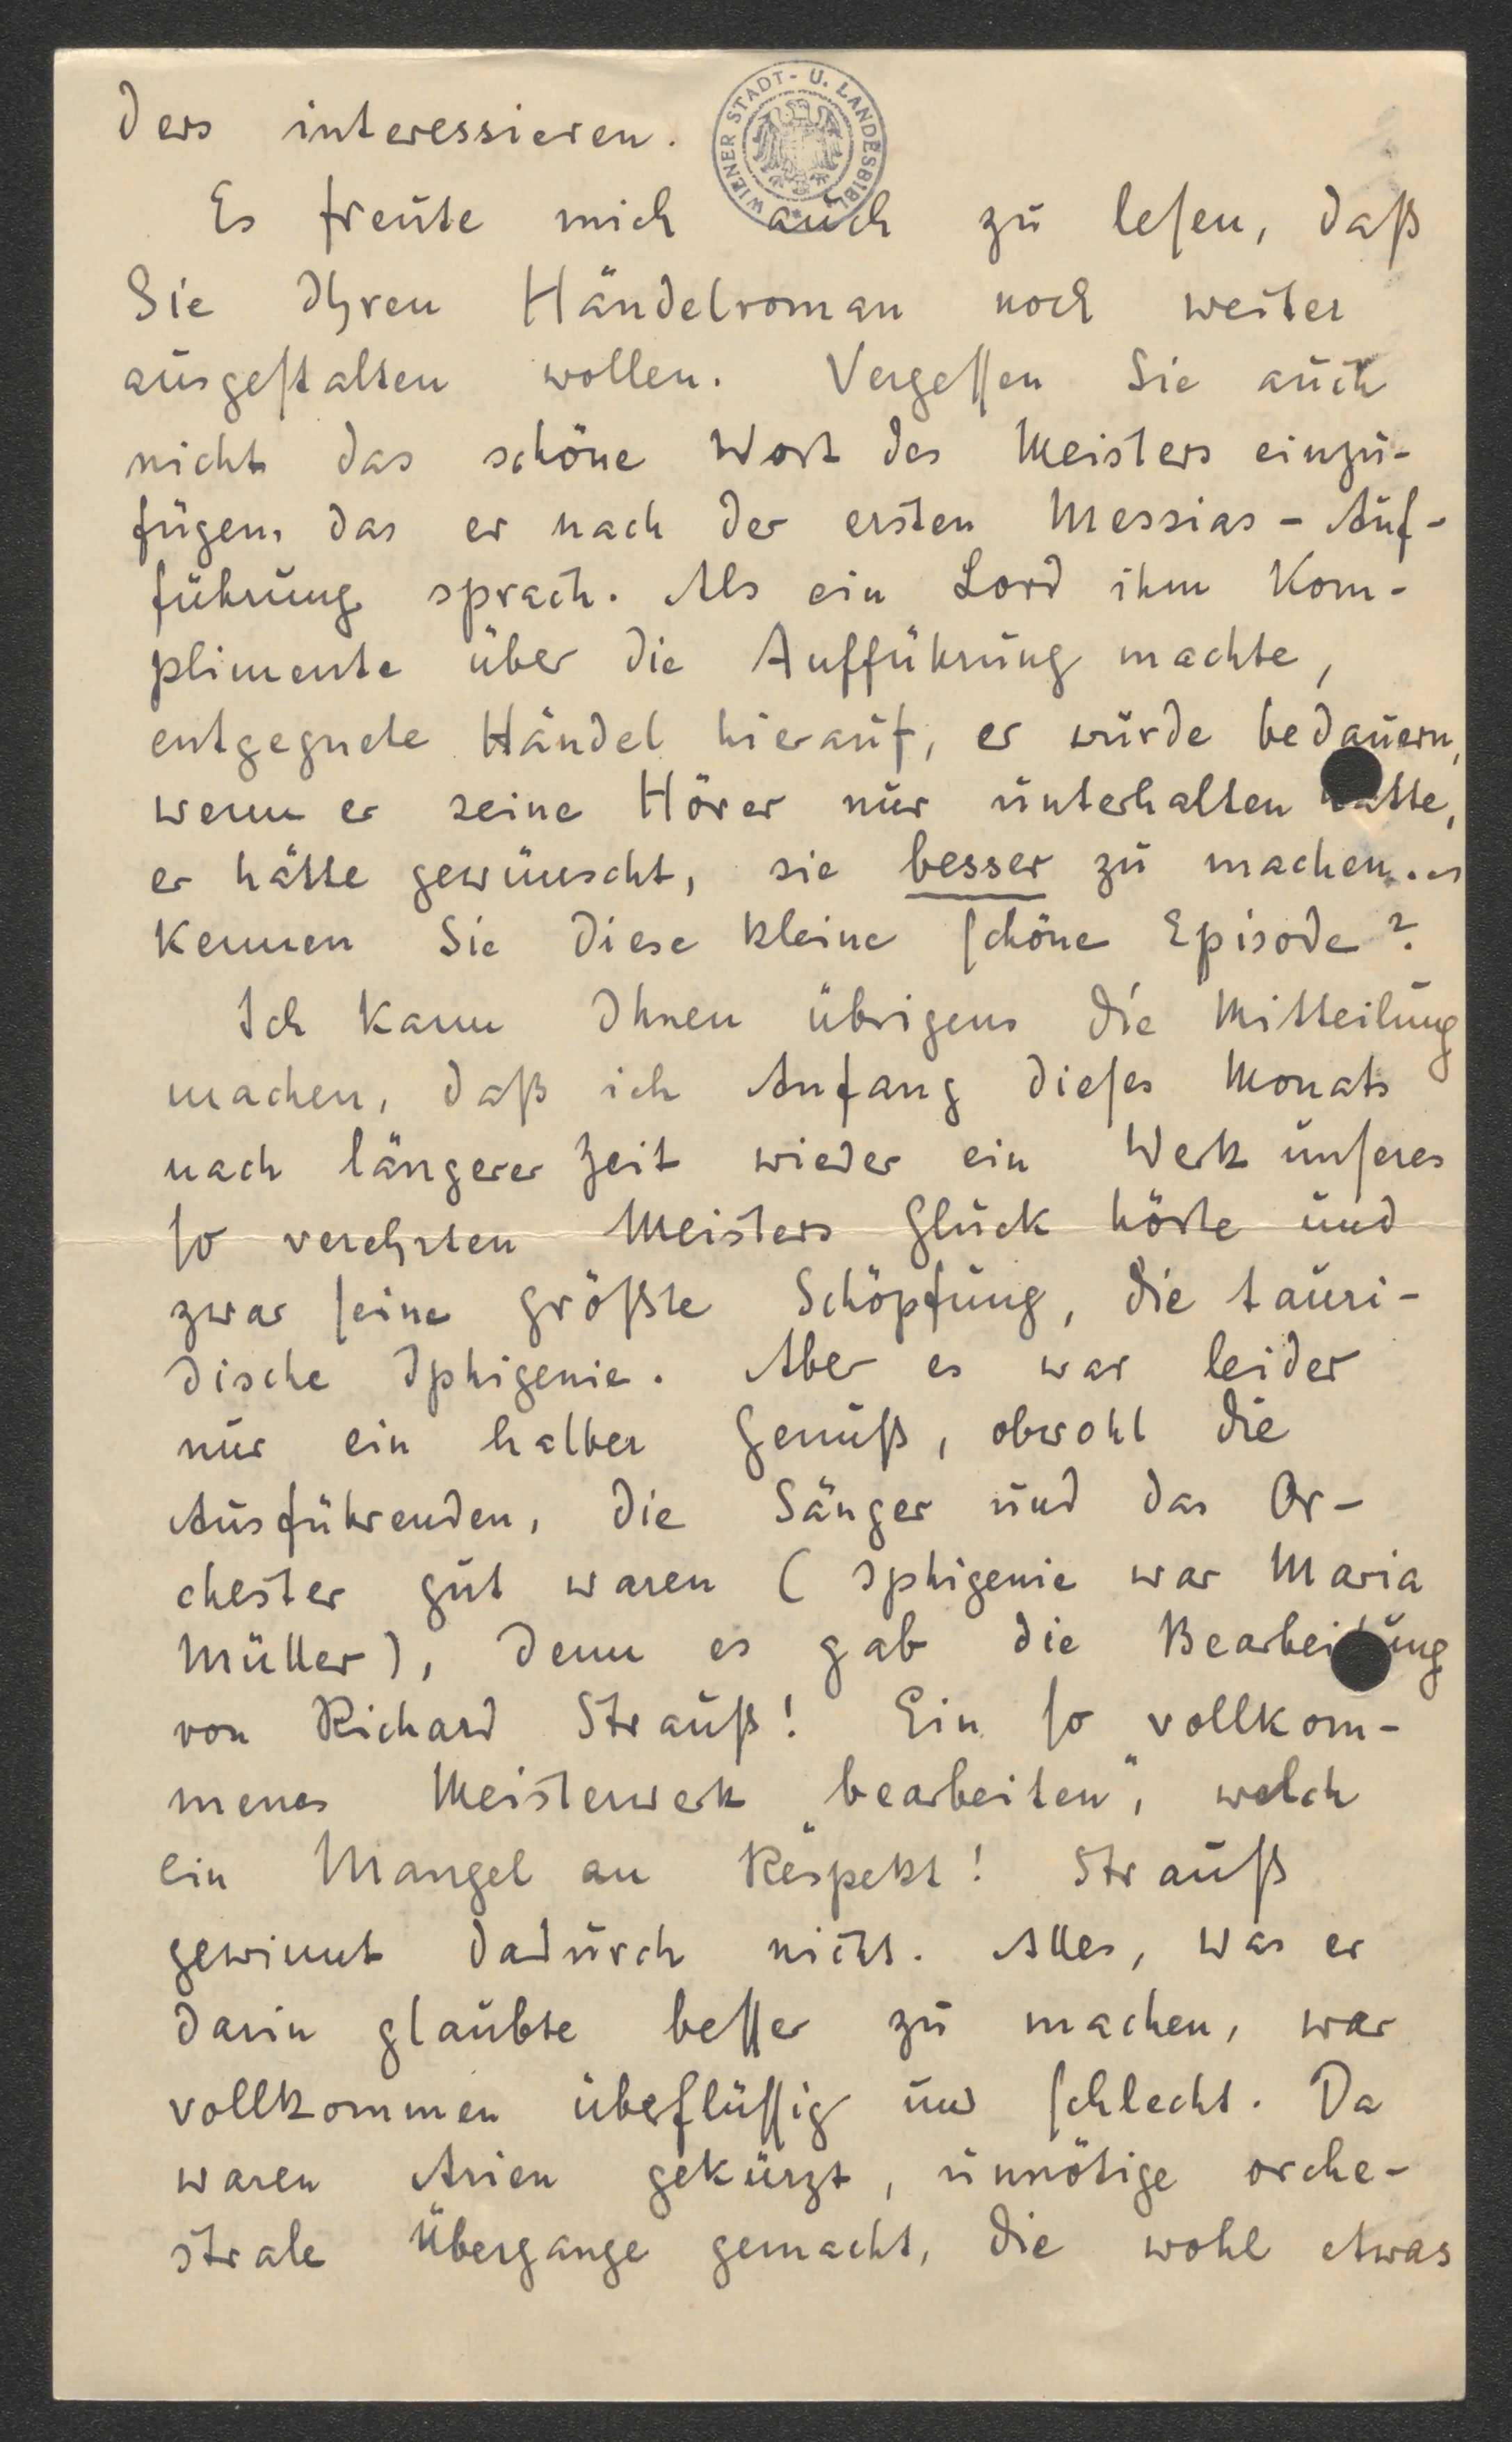 WIENER STADT- U. LANDESBIBL.
ders interessieren.
Es freute mich auch zu lesen, daß
Sie Ihren Händelroman noch weiter
ausgestalten wollen. Vergessen Sie auch
nicht das schöne Wort des Meisters einzu-
fügen, das er nach der ersten Messias-Auf-
führung sprach. Als ein Lord ihm Kom-
plimente über die Aufführung machte,
entgegnete Händel hierauf, er würde bedauern,
wenn er seine Hörer nur unterhalten hätte,
er hätte gewünscht, sie besser zu machen.
Kennen Sie diese kleine schöne Episode?
Ich kann Ihnen übrigens die Mitteilung
machen, daß ich Anfang dieses Monats
nach längerer Zeit wieder ein Werk unseres
so verehrten Meisters Gluck hörte und
zwar seine größte Schöpfung, die tauri-
dische Iphigenie. Aber es war leider
nur ein halber Genuß, obwohl die
Ausführenden, die Sänger und das Or-
chester gut waren (Iphigenie war Maria
Müller), denn es gab die Bearbeitung
von Richard Strauß! Ein so vollkom-
menes Meisterwerk "bearbeiten", welch
ein Mangel an Respekt! Strauß
gewinnt dadurch nicht. Alles, was er
darin glaubte besser zu machen, war
vollkommen überflüssig und schlecht. Da
waren Arien gekürzt, unnötige orche-
strale Übergange gemacht, die wohl etwas